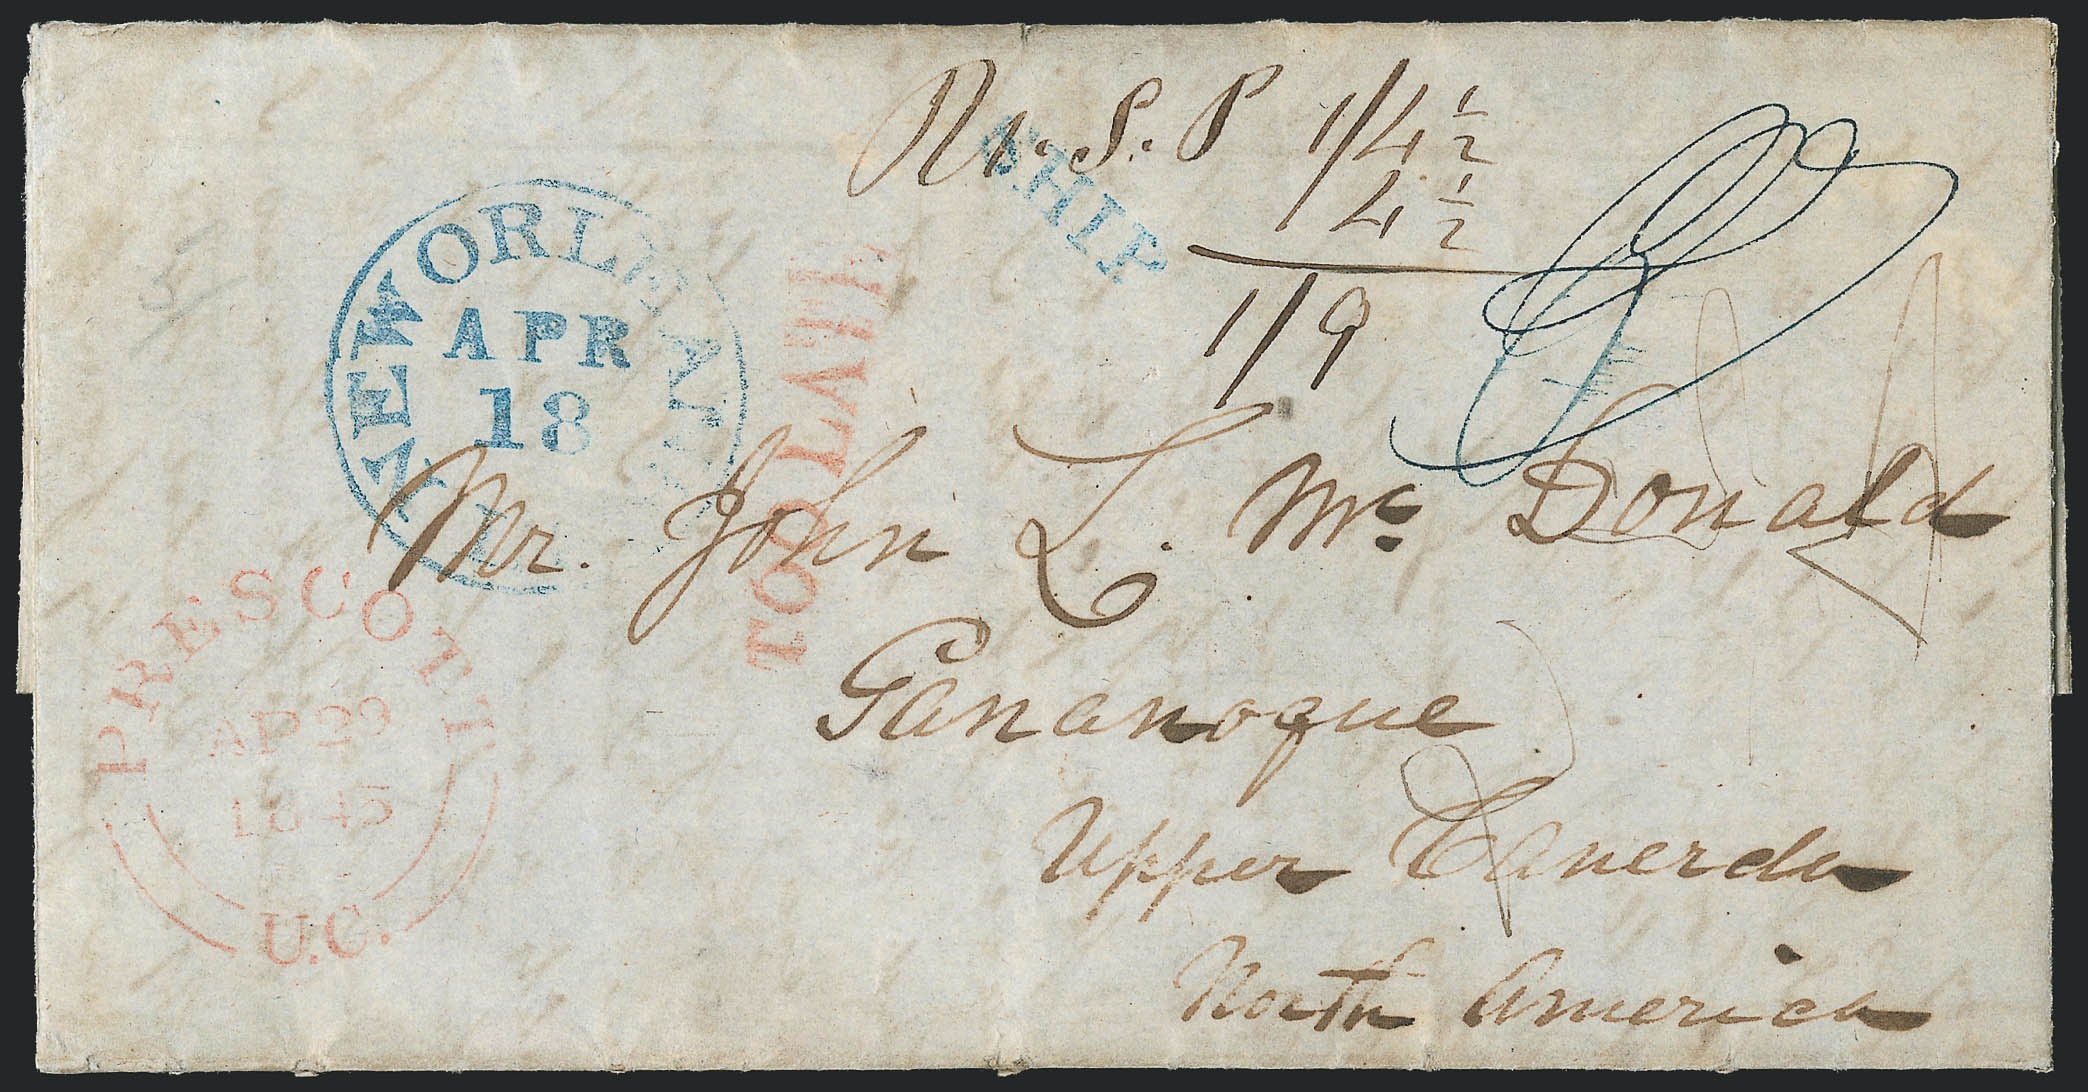 SHIP
1/4 1/2
4 1/2
1/9
NEW ORLEANS
APR
18
TOO LATE
Mr. John L. Mc Donald
Gananoque
Upper Canerda
North America
PRESCOTT
AP 29
1845
U.C.